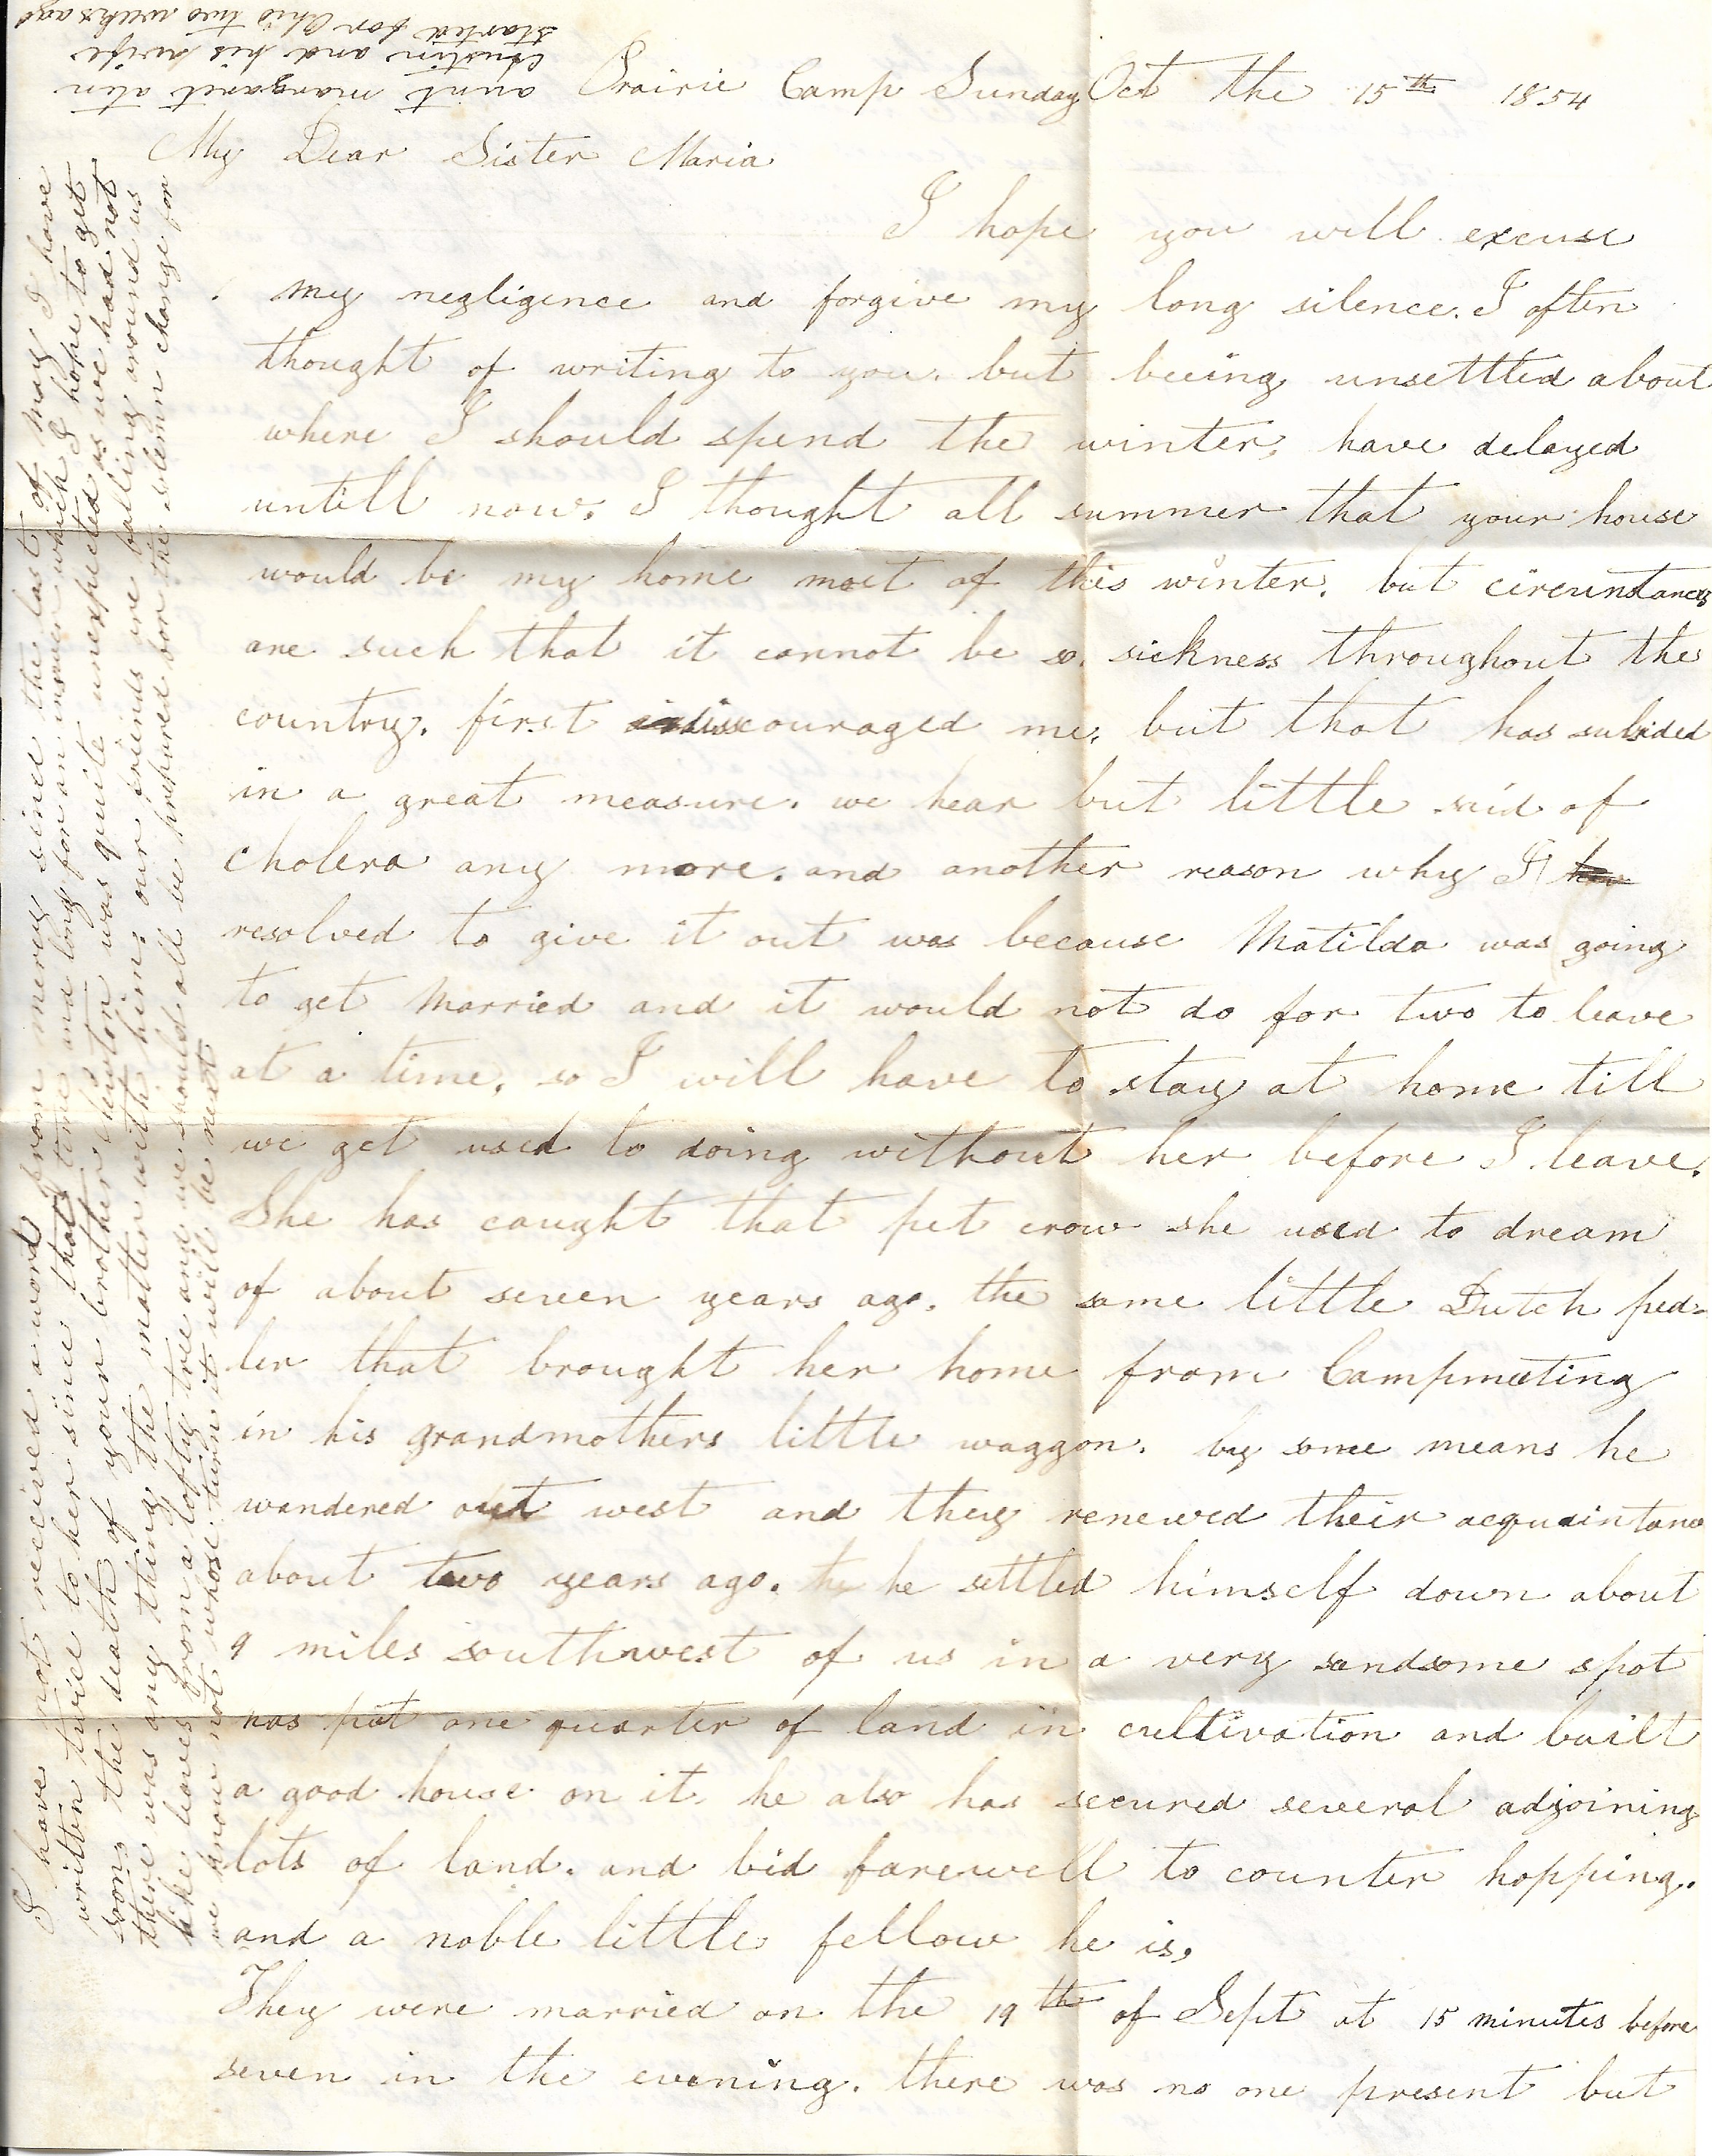 Prairie Camp Sunday Oct the 15th 1854
My Dear Sister Maria
I hope you will excuse
my negligence and forgive my long silence. I often
thought of writing to you. but beeing unsettled about
where I should spend the winter, have delayed
untill now. I thought all summer that your house
would be my home most of this winter. but circumstances
are such that it cannot be so. sickness throughout the
country. first discouraged me, but that has subsided
in a great measure. we hear but little said of
cholera any more. and another reason why I
resolved to give it out was because Matilda was going
to get Married and it would not do for two to leave
at a time. so I will have to stay at home till
we get used to doing without her before I leave.
She has caught that pet crow she used to dream
of about seven years ago. the same little Dutch ped=
ler that brought her home from Campmeeting
in his grandmothers little waggon. by some means he
wandered out west and they renewed their acquaintance
about two years ago. he he settled himself down about
9 miles southwest of us in a very handsome spot
has put one quarter of land in cultivation and built
a good house on it. he also has secured several adjoining
lots of land. and bid farewell to counter hopping.
and a noble little fellow he is,
They were married on the 19th of Sept at 15 minutes before
seven in the evening. there was no one present but
I have not received a word from mercy since the last of May I have
written twice to her since that time and long for an answer which I hope to get
soon, the death of your brother was quite unexpected as we had not
there was any thing the matter with him. our friends are falling around us
like leaves from a lofty tree and we should all be prepared for the solemn change for
we know not whose turn it will be next
aunt margaret
Austin and his wife
started for Ohio two weeks ago